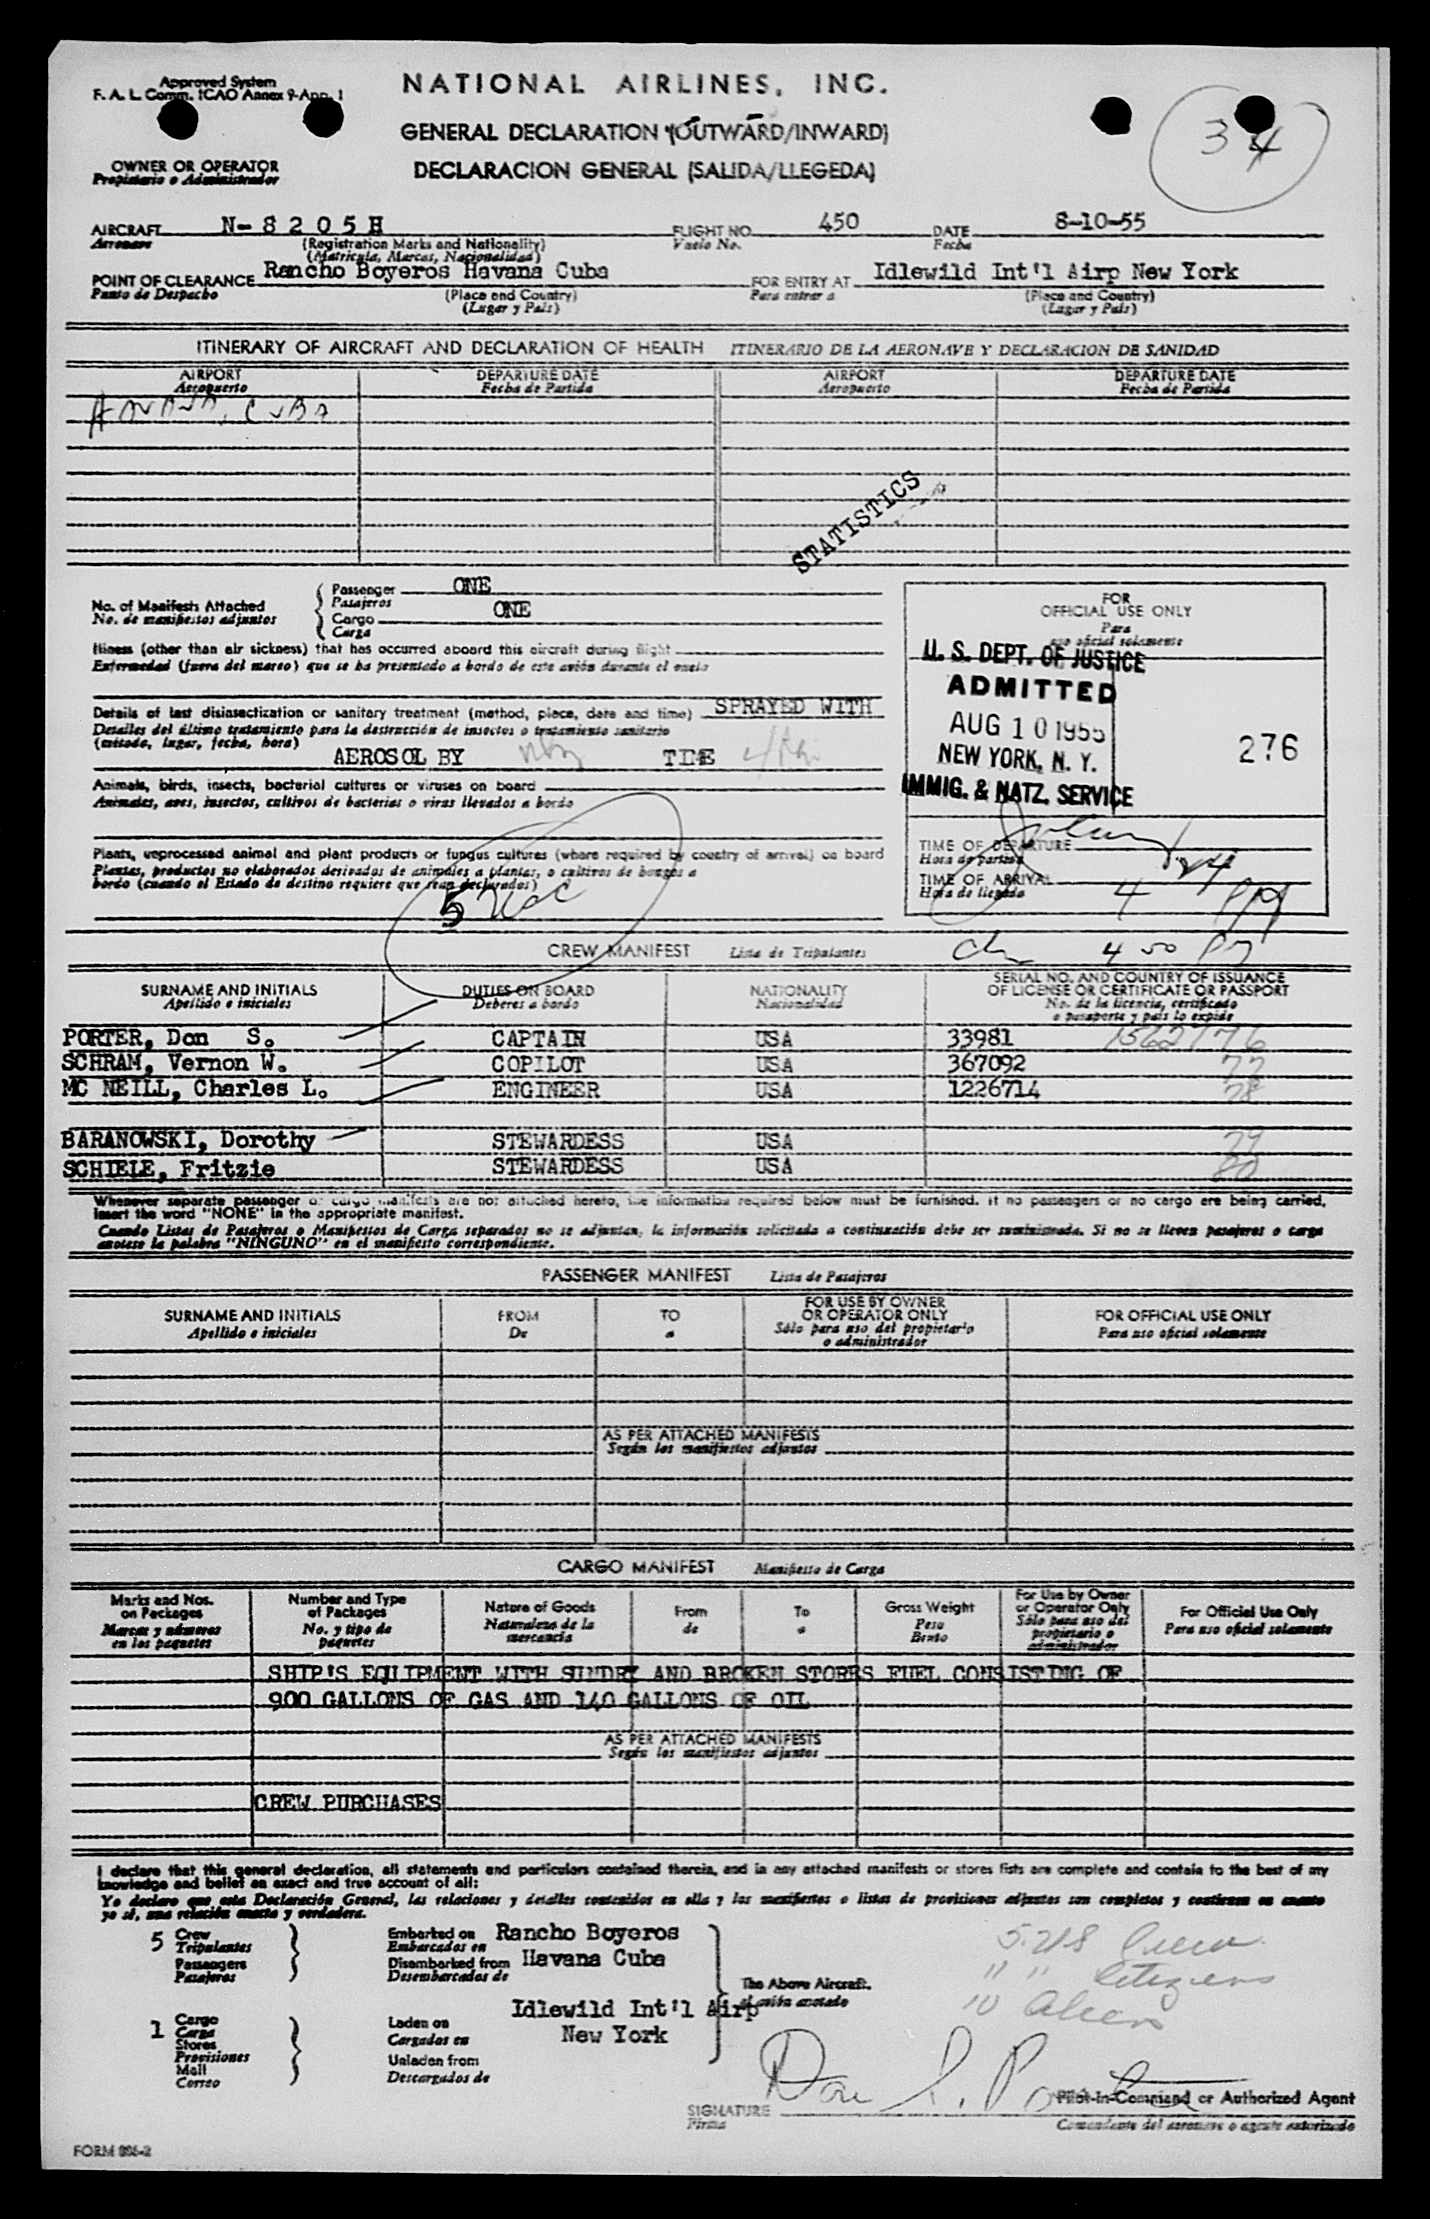 Approved System
F. A. L. Comm. ICAO Annex 9-App. 1
NATIONAL AIRLINES, INC.
GENERAL DECLARATION (OUTWARD/INWARD)
DECLARACION GENERAL (SALIDA/LLEGEDA)
34
OWNER OR OPERATOR
Propietario o Administrador
AIRCRAFT N-8205H FLIGHT NO. 450 DATE 8-10-55
Aeronave (Registration Marks and Nationality) Vuelo No. Fecha
(Matricula, Marcas, Nacionalidad)
POINT OF CLEARANCE Rancho Boyeros Havana Cuba FOR ENTRY AT Idlewild Int'l Airp New York
Punto de Despacho (Place and Country) Para entrar a (Place and Country)
(Lugar y Pais) (Lugar y Pais)
ITINERARY OF AIRCRAFT AND DECLARATION OF HEALTH ITINERARIO DE LA AERONAVE Y DECLARACION DE SANIDAD
AIRPORT DEPARTURE DATE AIRPORT DEPARTURE DATE
Aeropuerto Fecha de Partida Aeropuerto Fecha de Partida
HAVANA, CUBA
STATISTICS
No. of Manifests Attached Passenger ONE
No. de manifiestos adjuntos Pasajeros
Cargo ONE
Carga
Illness (other than air sickness) that has occurred aboard this aircraft during flight
Enfermedad (fuera del mareo) que se ha presentado a bordo de este avión durante el vuelo
Details of last disinsectization or sanitary treatment (method, place, date and time) SPRAYED WITH
Detalles del último tratamiento para la destrucción de insectos o tratamiento sanitario
(método, lugar, fecha, hora)
AEROSOL BY TIME
Animals, birds, insects, bacterial cultures or viruses on board
Animales, aves, insectos, cultivos de bacterias o virus llevados a bordo
Plants, unprocessed animal and plant products or fungus cultures (where required by country of arrival) on board
Plantas, productos no elaborados derivados de animales a plantas, o cultivos de hongos a
bordo (cuando el Estado de destino requiere que sean declarados)
5
FOR
OFFICIAL USE ONLY
Para
uso oficial solamente
U. S. DEPT. OF JUSTICE
ADMITTED
AUG 10 1955
NEW YORK, N. Y.
IMMIG. & NATZ. SERVICE
276
TIME OF DEPARTURE
Hora de partida
TIME OF ARRIVAL 4 24 PM
Hora de llegada
4 50 PM
CREW MANIFEST Lista de Tripulantes
SURNAME AND INITIALS DUTIES ON BOARD NATIONALITY SERIAL NO. AND COUNTRY OF ISSUANCE
OF LICENSE OR CERTIFICATE OR PASSPORT
Apellido e iniciales Deberes a bordo Nacionalidad No. de la licencia, certificado
o pasaporte y pais lo expide
PORTER, Don S. CAPTAIN USA 33981 1562176
SCHRAM, Vernon W. COPILOT USA 367092 77
MC NEILL, Charles L. ENGINEER USA 1226714 78
BARANOWSKI, Dorothy STEWARDESS USA 79
SCHIELE, Fritzie STEWARDESS USA 80
Whenever separate passenger or cargo manifests are not attached hereto, the information required below must be furnished. If no passengers or no cargo are being carried,
insert the word "NONE" in the appropriate manifest.
Cuando Listas de Pasajeros o Manifiestos de Carga separados no se adjuntan, la información solicitada a continuación debe ser suministrada. Si no se lleven pasajeros o carga
anotese la palabra "NINGUNO" en el manifiesto correspondiente.
PASSENGER MANIFEST Lista de Pasajeros
SURNAME AND INITIALS FROM TO FOR USE BY OWNER OR OPERATOR ONLY FOR OFFICIAL USE ONLY
Apellido e iniciales De a Sólo para uso del propietario o administrador Para uso oficial solamente
AS PER ATTACHED MANIFESTS
Según los manifiestos adjuntos
CARGO MANIFEST Manifiesto de Carga
Marks and Nos. on Packages Number and Type of Packages Nature of Goods From To Gross Weight For Use by Owner or Operator Only For Official Use Only
Marcas y números en los paquetes No. y tipo de paquetes Naturaleza de la mercancia de a Peso Bruto Sólo para uso del propietario o administrador Para uso oficial solamente
SHIP'S EQUIPMENT WITH SUNDRY AND BROKEN STORES FUEL CONSISTING OF
900 GALLONS OF GAS AND 140 GALLONS OF OIL
AS PER ATTACHED MANIFESTS
Según los manifiestos adjuntos
CREW PURCHASES
I declare that this general declaration, all statements and particulars contained therein, and in any attached manifests or stores lists are complete and contain to the best of my
knowledge and belief an exact and true account of all:
Yo declaro que esta Declaración General, las relaciones y detalles contenidos en ella y los manifiestos o listas de provisiones adjuntos son completos y contienen en cuanto
yo sé, una relación exacta y verdadera.
5 Crew
Tripulantes
Passengers
Pasajeros
Embarked on Rancho Boyeros
Embarcados en
Disembarked from Havana Cuba
Desembarcados de
The Above Aircraft.
el avión anotado
1 Cargo
Carga
Stores
Provisiones
Mail
Correo
Idlewild Int'l Airp
Laden on New York
Cargados en
Unladen from
Descargados de
5 US Crew
" " Citizens
10 Aliens
Don S. Porter
Pilot-in-Command or Authorized Agent
SIGNATURE
Firma
Comandante del aeronave o agente autorizado
FORM 806-2